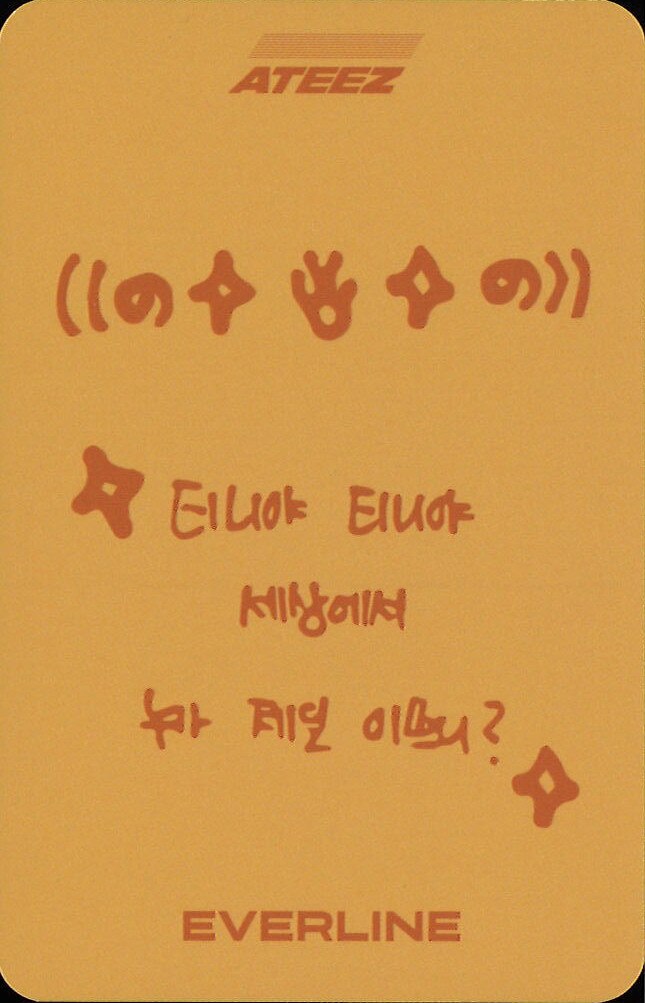 ATEEZ
티니야 티니야
세상에서
누가 제일 이쁘니?
EVERLINE